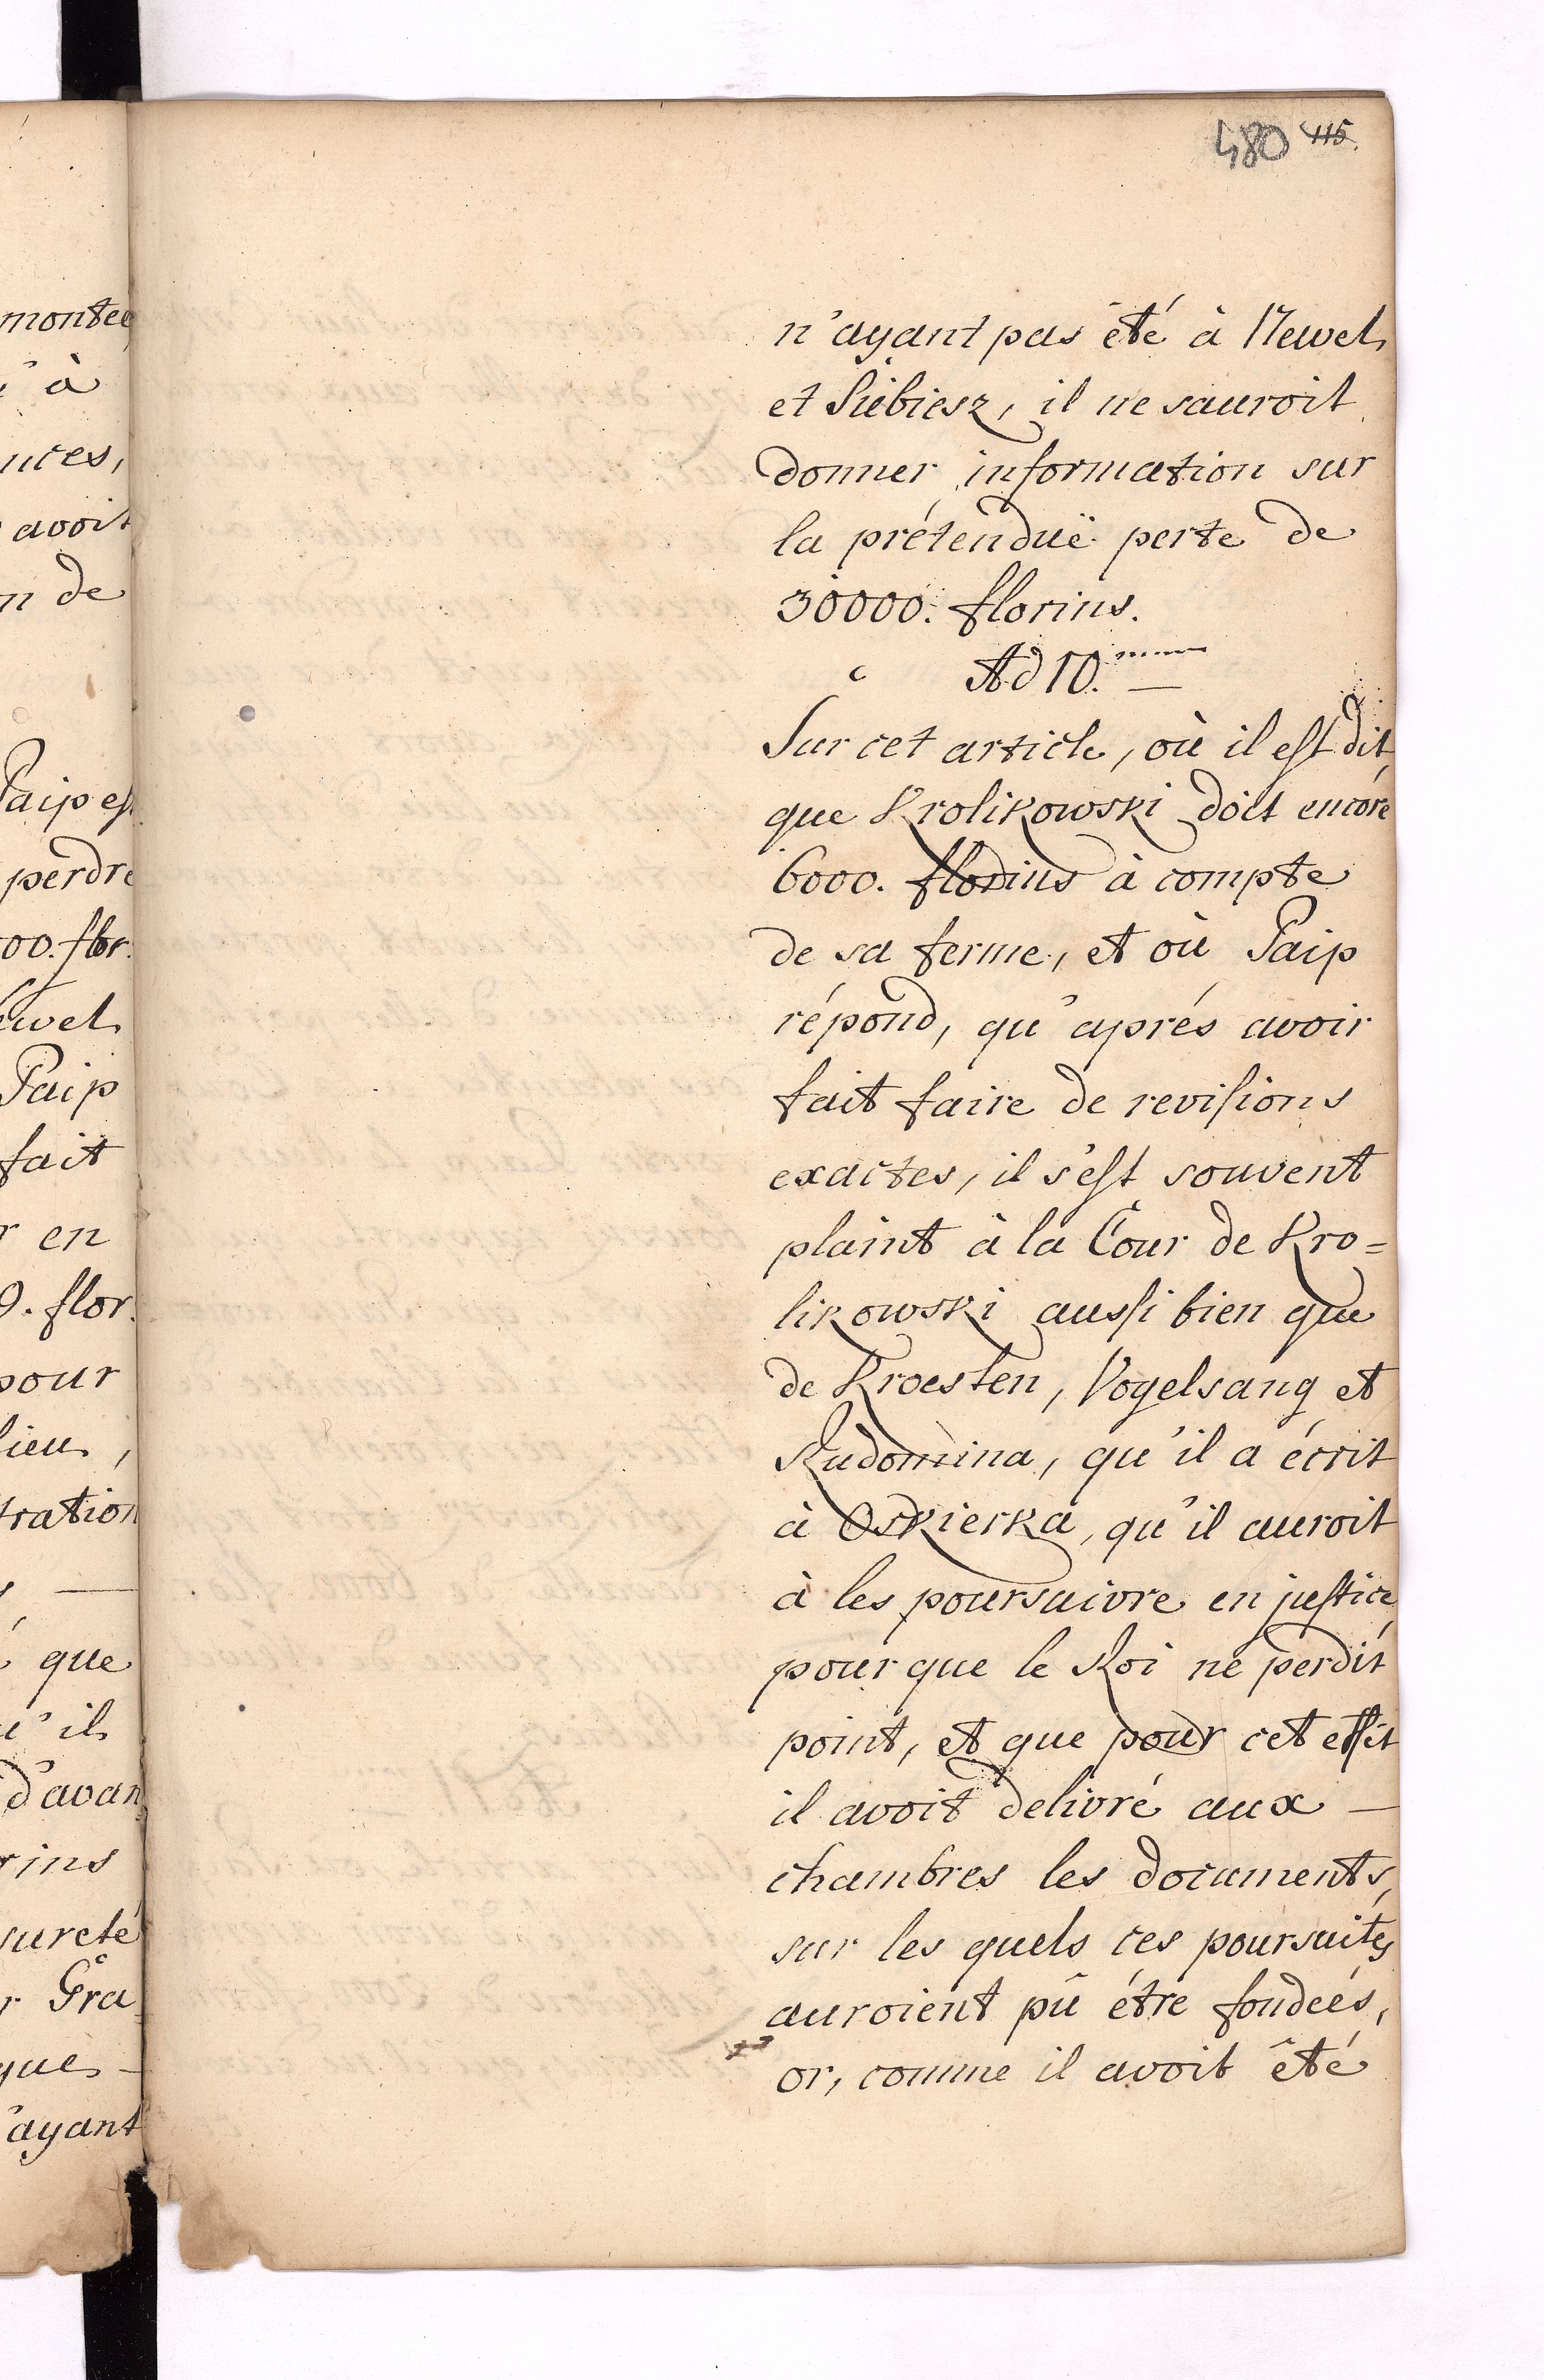 480 115.
montee
à
nces,
avoit
n de
Paip est
perdre
00. flor.
ewel
Paip
fait
r en
9. flor.
pour
lieu,
tration
é que
u'il
d'avan
rins
sureté
r Gra
ques
'ayant
n'ayant pas été à Newel
et Siebiesz, il ne sauroit
donner information sur
la prétenduë perte de
30000. florins.
Ad 10.
Sur cet article, où il est dit,
que Krolikowski doit encore
6000. florins à compte
de sa ferme, et où Paip
répond, qu'aprés avoir
fait faire de revisions
exactes, il s'est souvent
plaint à la Cour de Kro=
likowski aussi bien que
de Kroesten, Vogelsang et
Rudomina, qu'il a écrit
à Oskierka, qu'il auroit
à les poursuivre en justice
pour que le Roi ne perdit
point, et que pour cet effet
il avoit delivré aux —
chambres les documents,
sur les quels ces poursuites
auroient pû étre fondeés,
or, comme il avoit êté